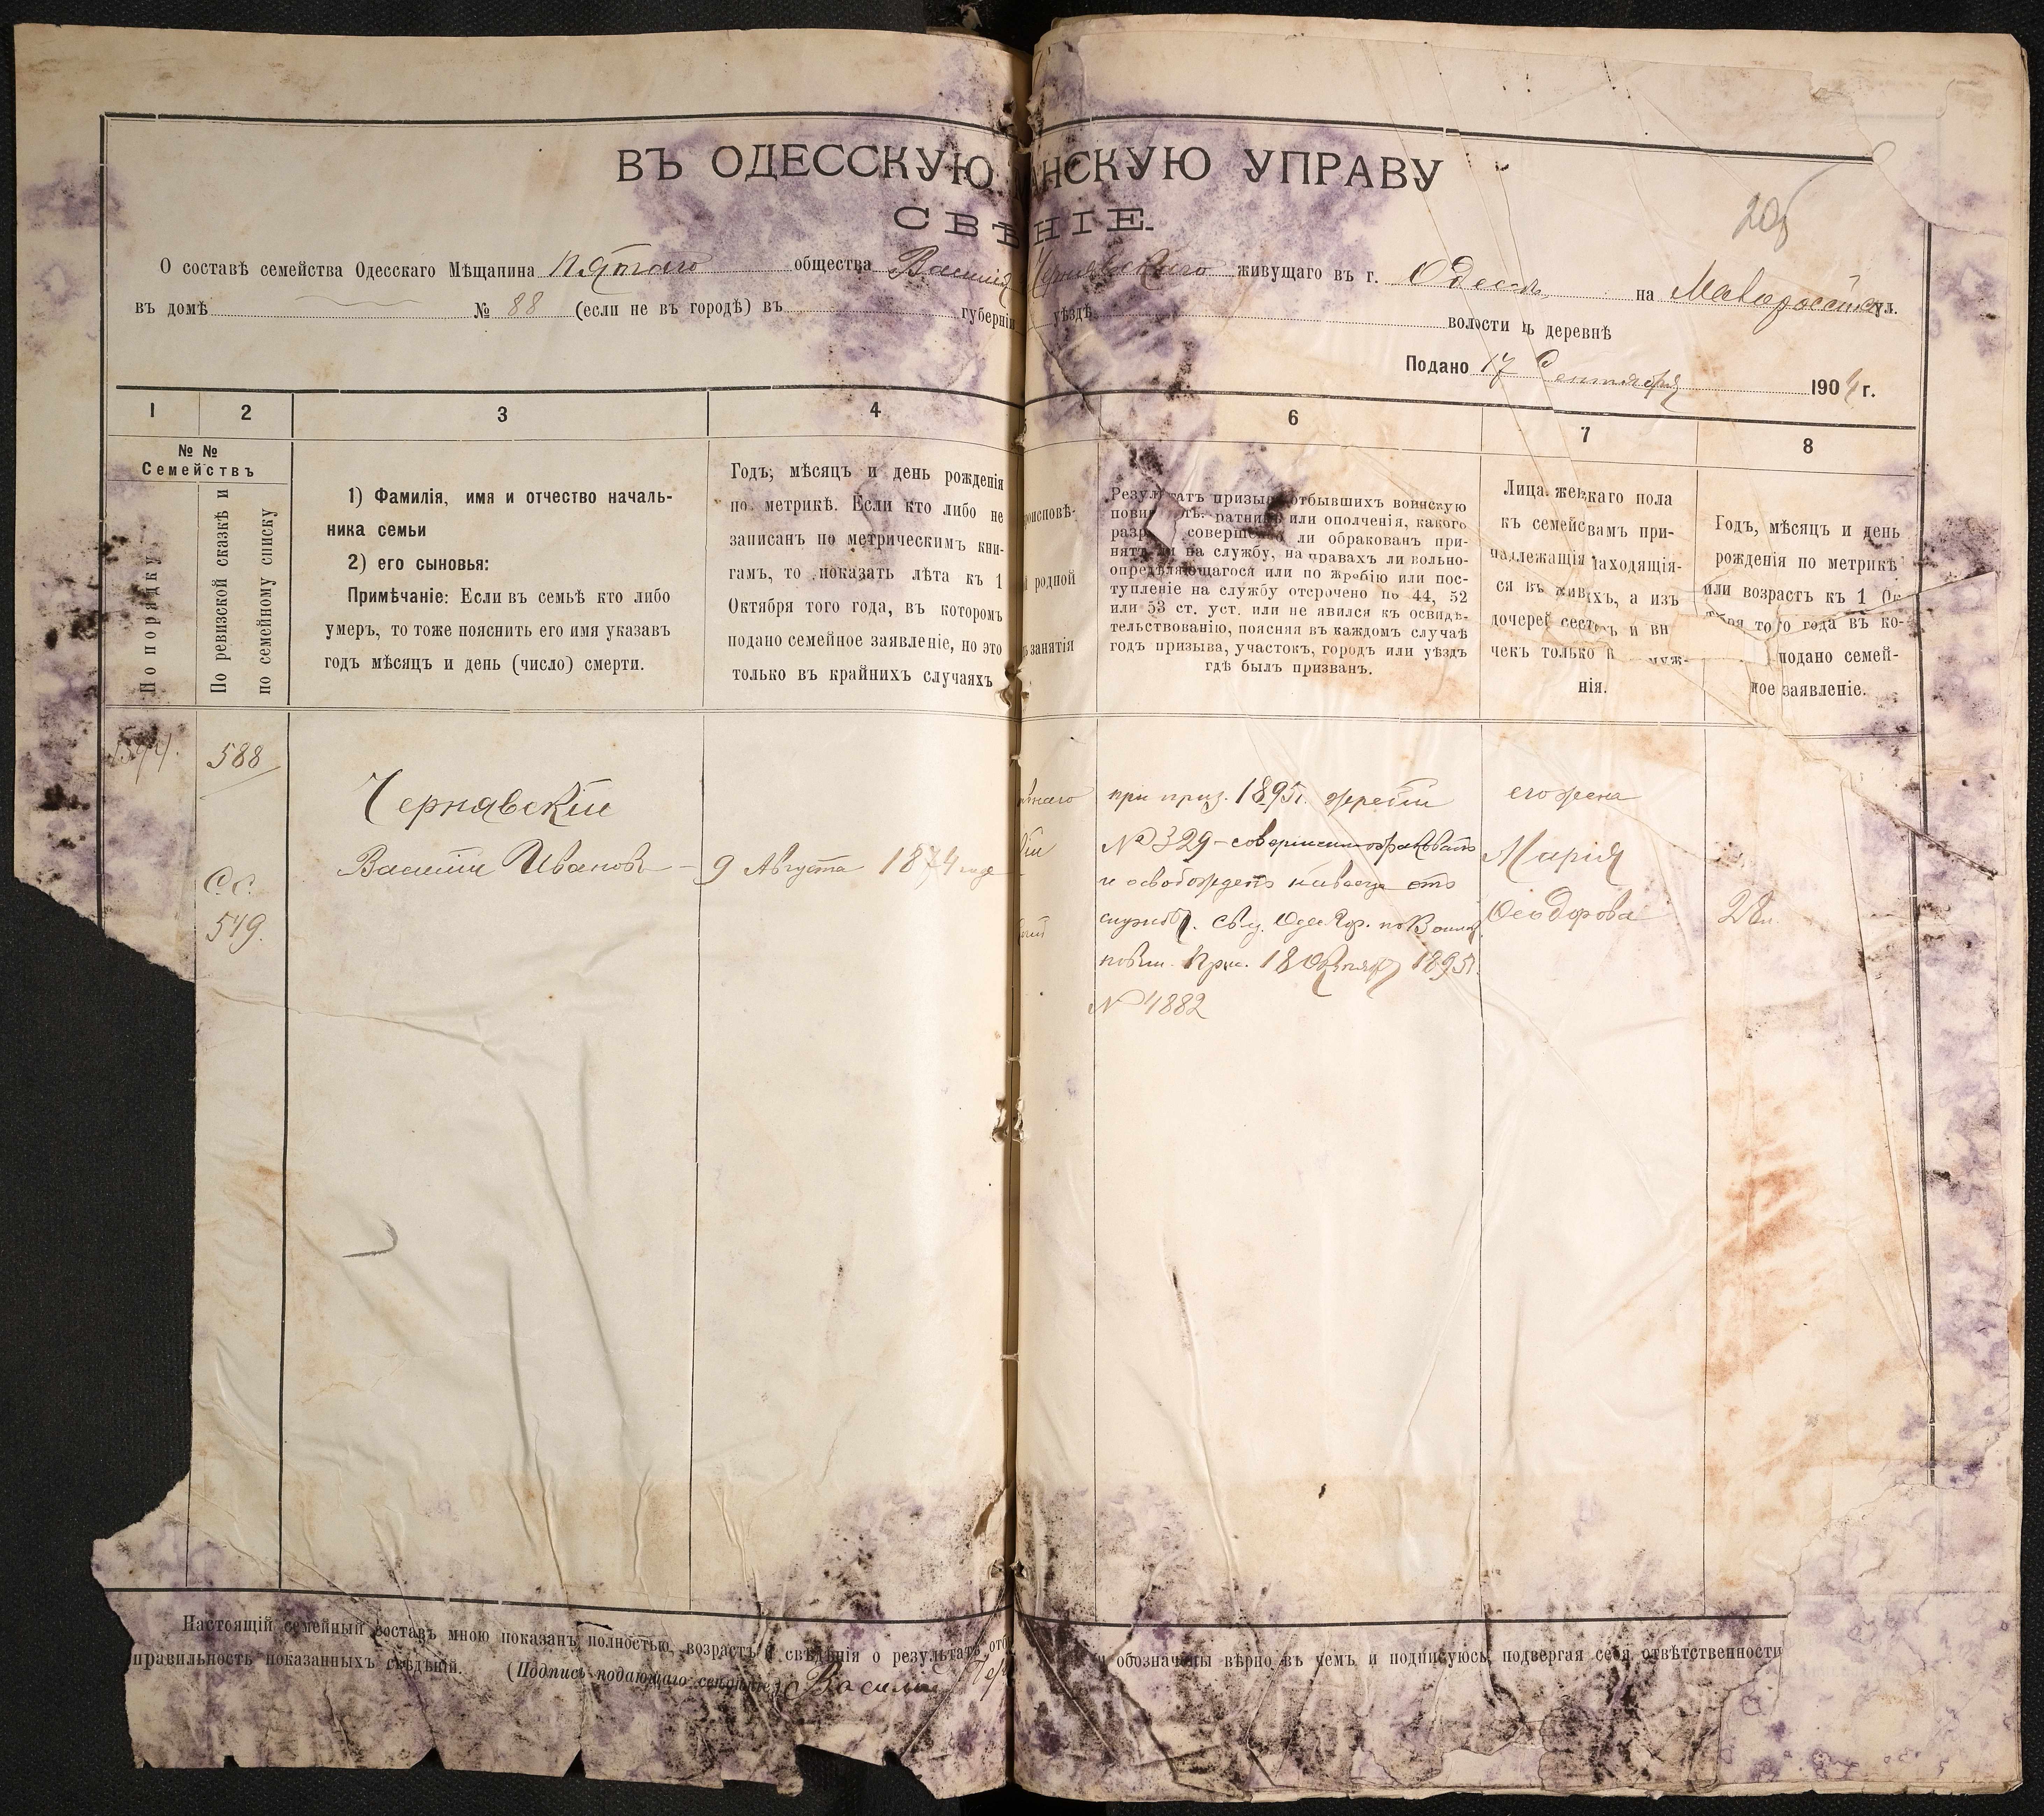 ВЪ ОДЕССКУЮ НСКУЮ УПРАВУ
СВѢ НІЕ.
205
О составѣ семейства Одесскаго Мѣщанина пятаго общества Василія Чернявскаго живущаго въ г. Одессѣ на ул.
въ домѣ № 88 (если не въ городѣ) въ губерніи уѣздѣ волости въ деревнѣ
Подано 17 Сентября 1904 г.
1 2 3 4 6 7 8
№ №
Семействъ
По порядку
По ревизской сказкѣ и
по семейному списку
1) Фамилія, имя и отчество началь-
ника семьи
2) его сыновья:
Примѣчаніе: Если въ семьѣ кто либо
умеръ, то тоже пояснить его имя указавъ
годъ мѣсяцъ и день (число) смерти.
Годъ, мѣсяцъ и день рожденія
по метрикѣ. Если кто либо не
записанъ по метрическимъ кни-
гамъ, то показать лѣта къ 1
Октября того года, въ которомъ
подано семейное заявленіе, но это
только въ крайнихъ случаяхъ
роисповѣ-
родной
занятія
Результатъ призыва отбывшихъ воинскую
пови ратник или ополченія, какого
разр соверше ли обракован при-
нятъ ли на службу, на правахъ ли вольно-
опредѣляющагося или по жребію или пос-
тупленіе на службу отсрочено по 44, 52
или 53 ст. уст. или не явился къ освидѣ-
тельствованію, поясняя въ каждомъ случаѣ
годъ призыва, участокъ, городъ или уѣздъ
гдѣ былъ призванъ.
Лица женскаго пола
къ семействамъ при-
надлежащія находящія-
ся въ живыхъ, а изъ
дочерей сест и вн
чекъ только н муж-
нія.
Годъ, мѣсяцъ и день
рожденія по метрикѣ
или возрастъ къ 1 Ок
тября того года въ ко-
подано семей-
ное заявленіе.
588
Чернявскій
Василій Ивановъ — 9 Августа 1874 года
С.С.
579.
при приз. 1895 г. жребій
№ 329 – совершенно обракованъ
и освобожденъ навсегда отъ
службы. Св. Одес. Гор. по Воинс.
повин. Прис. 18 Октября 1895 г.
№ 4882
его жена
Марія
Ѳеодорова
28 л.
Настоящій семейный составъ мною показанъ полностью, возрастъ и свѣдѣнія о результатѣ отб обозначены вѣрно въ чемъ и подписуюсь, подвергая себя отвѣтственности
правильность показанныхъ свѣдѣній. (Подпись подающаго свѣдѣніе) Василій Чер